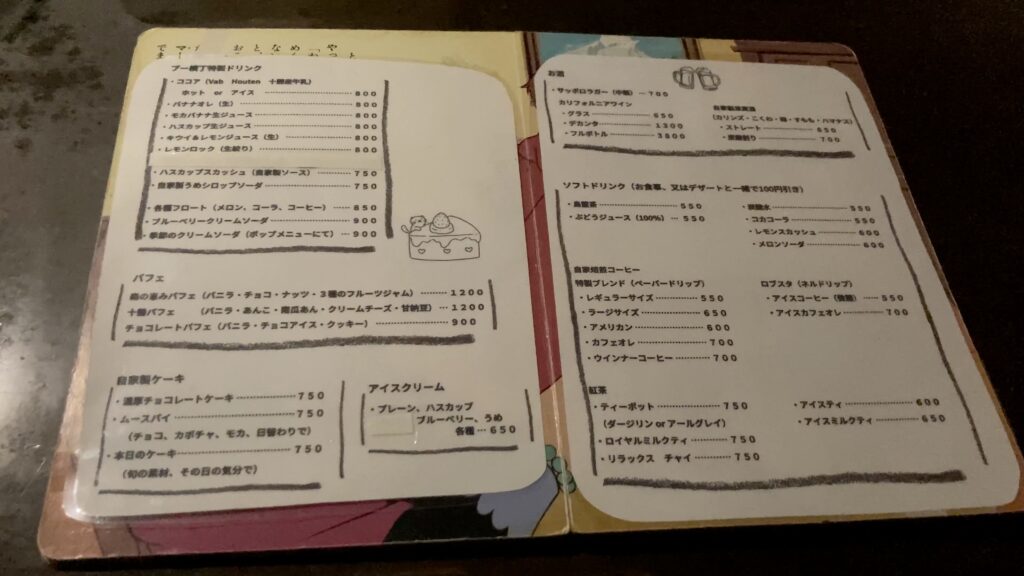 プー横丁特製ドリンク
・ココア（Vab Houten 十勝産牛乳）
ホット or アイス ……… 800
・バナナオレ（生） ……… 800
・モカバナナ生ジュース ……… 800
・ハスカップ生ジュース ……… 800
・キウイ&レモンジュース（生） ……… 800
・レモンロック（生絞り） ……… 800
・ハスカップスカッシュ（自家製ソース） ……… 750
・自家製うめシロップソーダ ……… 750
・各種フロート（メロン、コーラ、コーヒー） … 850
・ブルーベリークリームソーダ ……… 900
・季節のクリームソーダ（ポップメニューにて） … 900
パフェ
森の恵みパフェ（バニラ・チョコ・ナッツ・３種のフルーツジャム） ……… 1200
十勝パフェ （バニラ・あんこ・南瓜あん・クリームチーズ・甘納豆） … 1200
チョコレートパフェ（バニラ・チョコアイス・クッキー） ……… 900
自家製ケーキ
・濃厚チョコレートケーキ ……… 750
・ムースパイ ……… 750
（チョコ、カボチャ、モカ、日替わりで）
・本日のケーキ ……… 750
（旬の素材、その日の気分で）
アイスクリーム
・プレーン、ハスカップ
ブルーベリー、うめ
各種 … 650
お酒
・サッポロラガー（中瓶） … 700
カリフォルニアワイン
・グラス ……… 650
・デカンタ ……… 1300
・フルボトル ……… 3800
自家製果実酒
・ストレート ……… 650
・炭酸割り ……… 700
ソフトドリンク（お食事、又はデザートと一緒で100円引き）
・烏龍茶 ……… 550
・ぶどうジュース（100%） … 550
・炭酸水 ……… 550
・コカコーラ ……… 550
・レモンスカッシュ ……… 600
・メロンソーダ ……… 600
自家焙煎コーヒー
特製ブレンド（ペーパードリップ）
・レギュラーサイズ ……… 550
・ラージサイズ ……… 650
・アメリカン ……… 600
・カフェオレ ……… 700
・ウインナーコーヒー ……… 700
ロブスタ（ネルドリップ）
・アイスコーヒー（微糖） … 550
・アイスカフェオレ ……… 700
紅茶
・ティーポット ……… 750
（ダージリン or アールグレイ）
・ロイヤルミルクティ ……… 750
・リラックス チャイ ……… 750
・アイスティ ……… 600
・アイスミルクティ ……… 650